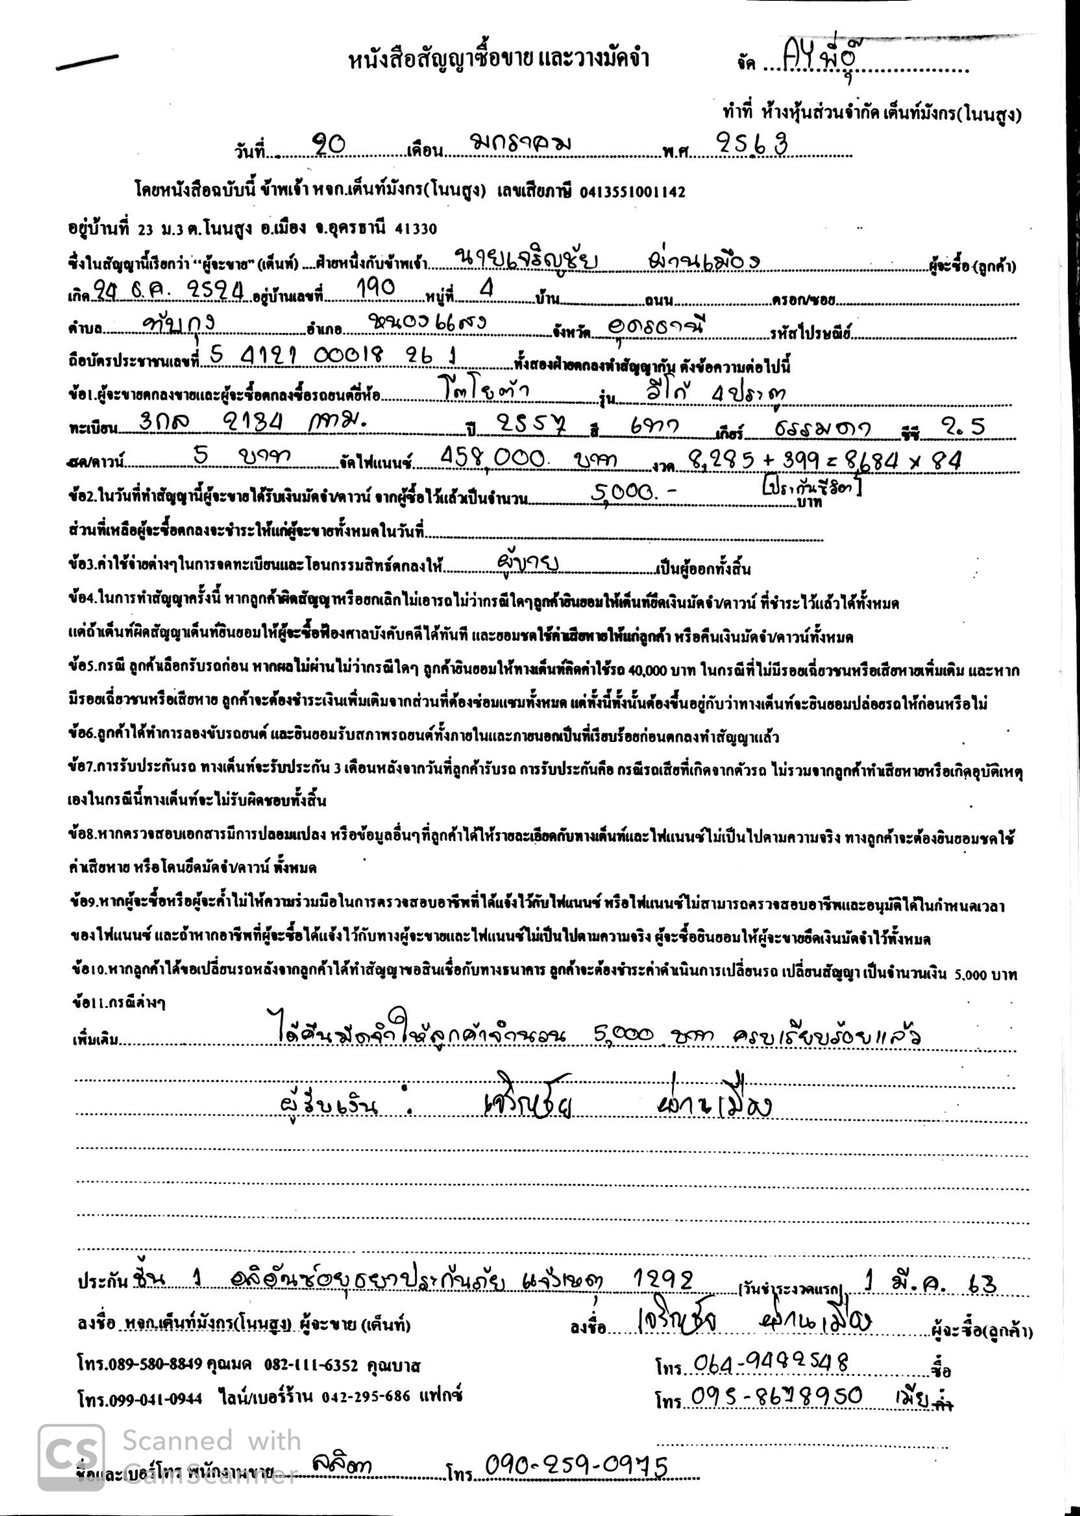 หนังสือสัญญาซื้อขาย และวางมัดจำ
จัด AY พี่อู๊
ทำที่ ห้างหุ้นส่วนจำกัด เต็นท์มังกร(โนนสูง)
วันที่ 20 เดือน มกราคม พ.ศ 2563
โดยหนังสือฉบับนี้ ข้าพเจ้า หจก.เต็นท์มังกร(โนนสูง) เลขเสียภาษี 0413551001142
อยู่บ้านที่ 23 ม.3 ต.โนนสูง อ.เมือง จ.อุดรธานี 41330
ซึ่งในสัญญานี้เรียกว่า "ผู้จะขาย" (เต็นท์) ....ฝ่ายหนึ่งกับข้าพเจ้า นายเจริญชัย ผ่านเมือง ผู้จะซื้อ (ลูกค้า)
เกิด 24 ธ.ค. 2524 อยู่บ้านเลขที่ 190 หมู่ที่ 4 บ้าน ถนน ตรอก/ซอย
ตำบล ทับกุง อำเภอ หนองแสง จังหวัด อุดรธานี รหัสไปรษณีย์
ถือบัตรประชาชนเลขที่ 5 4121 00018 26 1 ทั้งสองฝ่ายตกลงทำสัญญากัน ดังข้อความต่อไปนี้
ข้อ1.ผู้จะขายตกลงขายและผู้จะซื้อตกลงซื้อรถยนต์ยี่ห้อ โตโยต้า รุ่น วีโก้ 4ประตู
ทะเบียน 3กล 2134 กทม. ปี 2557 สี เทา เกียร์ ธรรมดา ซีซี 2.5
สด/ดาวน์ 5 บาท จัดไฟแนนซ์ 458,000. บาท งวด 8,285 + 399 = 8,684 x 84
[ประกันชีวิต]
ข้อ2.ในวันที่ทำสัญญานี้ผู้จะขายได้รับเงินมัดจำ/ดาวน์ จากผู้ซื้อไว้แล้วเป็นจำนวน 5,000.- บาท
ส่วนที่เหลือผู้จะซื้อตกลงจะชำระให้แก่ผู้จะขายทั้งหมดในวันที่
ข้อ3.ค่าใช้จ่ายต่างๆในการจดทะเบียนและโอนกรรมสิทธ์ตกลงให้ ผู้ขาย เป็นผู้ออกทั้งสิ้น
ข้อ4.ในการทำสัญญาครั้งนี้ หากลูกค้าผิดสัญญาหรือยกเลิกไม่เอารถไม่ว่ากรณีใดๆลูกค้ายินยอมให้เต็นท์ยึดเงินมัดจำ/ดาวน์ ที่ชำระไว้แล้วได้ทั้งหมด
แต่ถ้าเต็นท์ผิดสัญญาเต็นท์ยินยอมให้ผู้จะซื้อฟ้องศาลบังคับคดีได้ทันที และยอมชดใช้ค่าเสียหายให้แก่ลูกค้า หรือคืนเงินมัดจำ/ดาวน์ทั้งหมด
ข้อ5.กรณี ลูกค้าเลือกรับรถก่อน หากผลไม่ผ่านไม่ว่ากรณีใดๆ ลูกค้ายินยอมให้ทางเต็นท์คิดค่าใช้รถ 40,000 บาท ในกรณีที่ไม่มีรอยเฉี่ยวชนหรือเสียหายเพิ่มเติม และหาก
มีรอยเฉี่ยวชนหรือเสียหาย ลูกค้าจะต้องชำระเงินเพิ่มเติมจากส่วนที่ต้องซ่อมแซมทั้งหมด แต่ทั้งนี้ทั้งนั้นต้องขึ้นอยู่กับว่าทางเต็นท์จะยินยอมปล่อยรถให้ก่อนหรือไม่
ข้อ6.ลูกค้าได้ทำการลองขับรถยนต์ และยินยอมรับสภาพรถยนต์ทั้งภายในและภายนอกเป็นที่เรียบร้อยก่อนตกลงทำสัญญาแล้ว
ข้อ7.การรับประกันรถ ทางเต็นท์จะรับประกัน 3 เดือนหลังจากวันที่ลูกค้ารับรถ การรับประกันคือ กรณีรถเสียที่เกิดจากตัวรถ ไม่รวมจากลูกค้าทำเสียหายหรือเกิดอุบัติเหตุ
เองในกรณีนี้ทางเต็นท์จะไม่รับผิดชอบทั้งสิ้น
ข้อ8.หากตรวจสอบเอกสารมีการปลอมแปลง หรือข้อมูลอื่นๆที่ลูกค้าได้ให้รายละเอียดกับทางเต็นท์และไฟแนนซ์ไม่เป็นไปตามความจริง ทางลูกค้าจะต้องยินยอมชดใช้
ค่าเสียหาย หรือโดนยึดมัดจำ/ดาวน์ ทั้งหมด
ข้อ9.หากผู้จะซื้อหรือผู้จะค้ำไม่ให้ความร่วมมือในการตรวจสอบอาชีพที่ได้แจ้งไว้กับไฟแนนซ์ หรือไฟแนนซ์ไม่สามารถตรวจสอบอาชีพและอนุมัติได้ในกำหนดเวลา
ของไฟแนนซ์ และถ้าหากอาชีพที่ผู้จะซื้อได้แจ้งไว้กับทางผู้จะขายและไฟแนนซ์ไม่เป็นไปตามความจริง ผู้จะซื้อยินยอมให้ผู้จะขายยึดเงินมัดจำไว้ทั้งหมด
ข้อ10.หากลูกค้าได้ขอเปลี่ยนรถหลังจากลูกค้าได้ทำสัญญาขอสินเชื่อกับทางธนาคาร ลูกค้าจะต้องชำระค่าดำเนินการเปลี่ยนรถ เปลี่ยนสัญญา เป็นจำนวนเงิน 5,000 บาท
ข้อ11.กรณีต่างๆ
เพิ่มเติม ได้คืนมัดจำให้ลูกค้าจำนวน 5,000 บาท ครบเรียบร้อยแล้ว
ผู้รับเงิน : เจริญชัย ผ่านเมือง
ประกัน ชั้น 1 อลิอันซ์อยุธยาประกันภัย แจ้งเหตุ 1292 (วันชำระงวดแรก) 1 มี.ค. 63
ลงชื่อ หจก.เต็นท์มังกร(โนนสูง) ผู้จะขาย (เต็นท์) ลงชื่อ เจริญชัย ผ่านเมือง ผู้จะซื้อ(ลูกค้า)
โทร.089-580-8849 คุณมด 082-111-6352 คุณบาส โทร 064-9492548 ซื้อ
โทร.099-041-0944 ไลน์/เบอร์ร้าน 042-295-686 แฟกซ์ โทร 095-8678950 เมีย ค้ำ
Scanned with
CS CamScanner
ชื่อและเบอร์โทร พนักงานขาย ลลิตา โทร. 090-259-0975